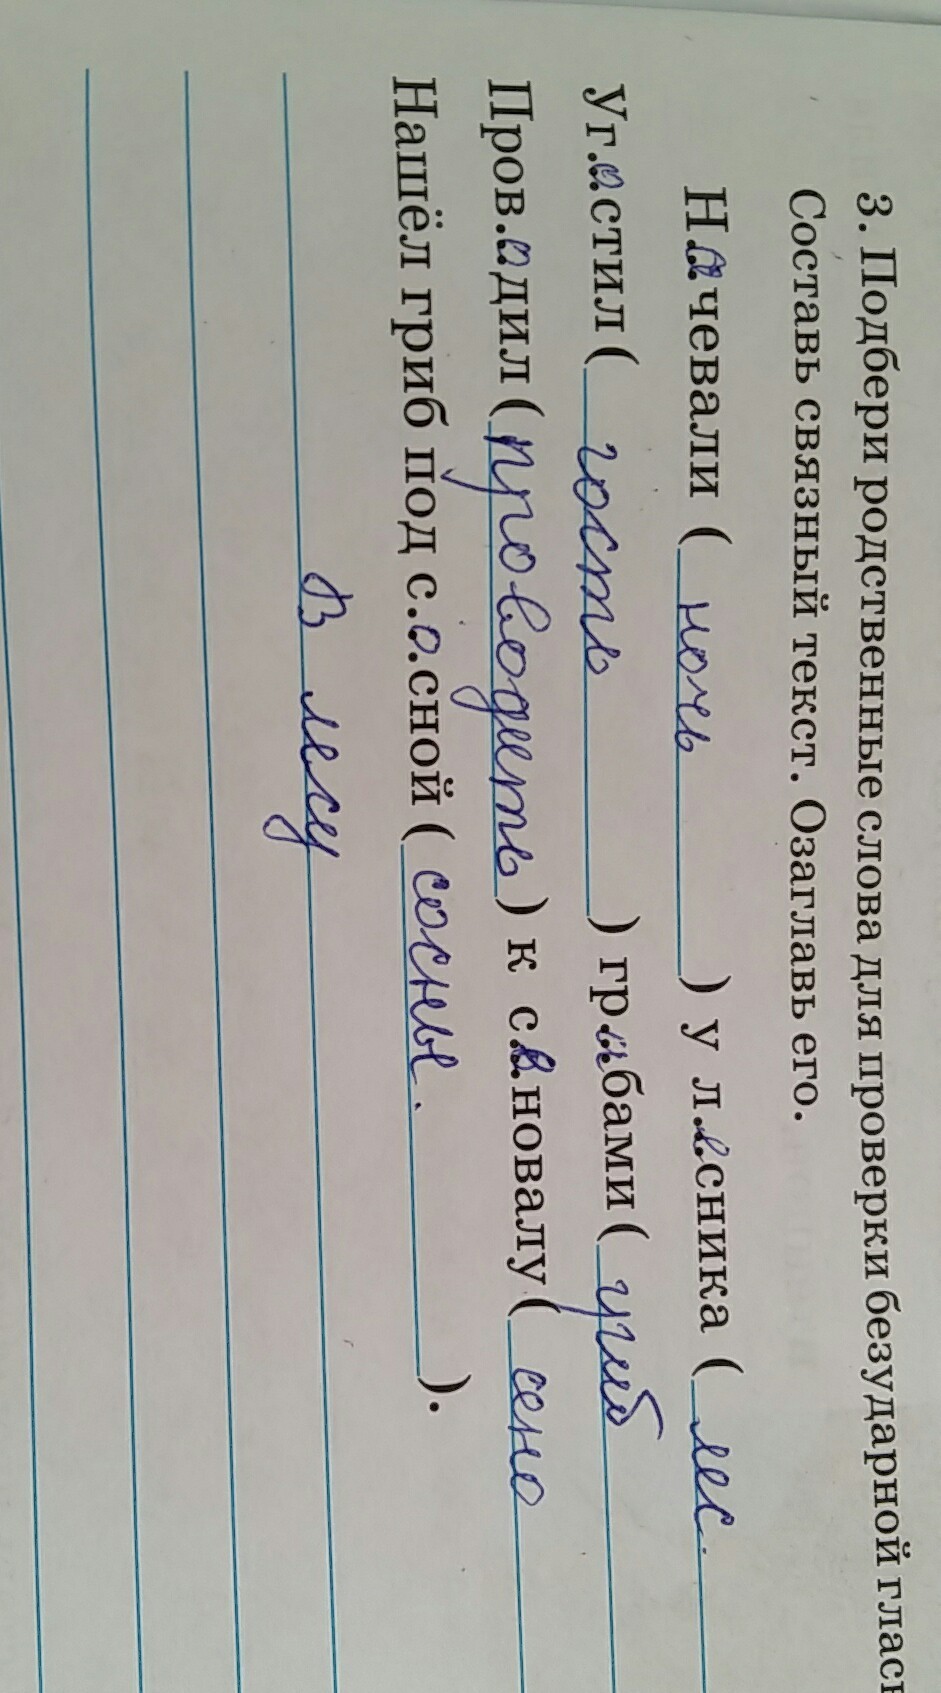 3. Подбери родственные слова для проверки безударной гласн
Составь связный текст. Озаглавь его.
Н.о.чевали ( ночь ) у л.е.сника ( лес.
Уг.о.стил ( гость ) гр.и.бами ( гриб
Пров.о.дил ( проводить ) к с.е.новалу ( сено
Нашёл гриб под с.о.сной ( сосны. ).
В лесу